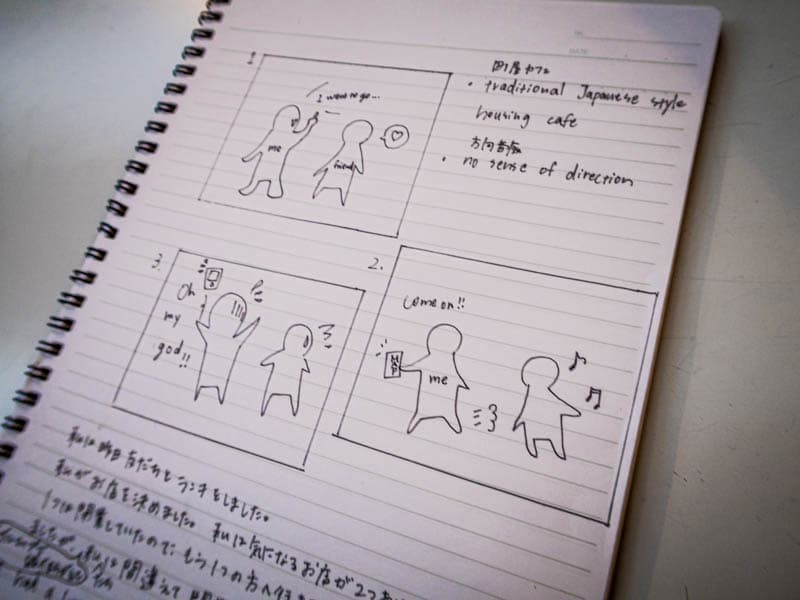 1.
I want to go...
me
friend
町屋カフェ
・traditional Japanese style
housing cafe
方向音痴
・no sense of direction
2.
come on!!
MAP
me
3.
Oh
my
god!!
私は昨日友だちとランチをしました。
私がお店を決めました。私は気になるお店が2つあ
1つは閉業していたので、もう1つの方へ行き
私は間違えて